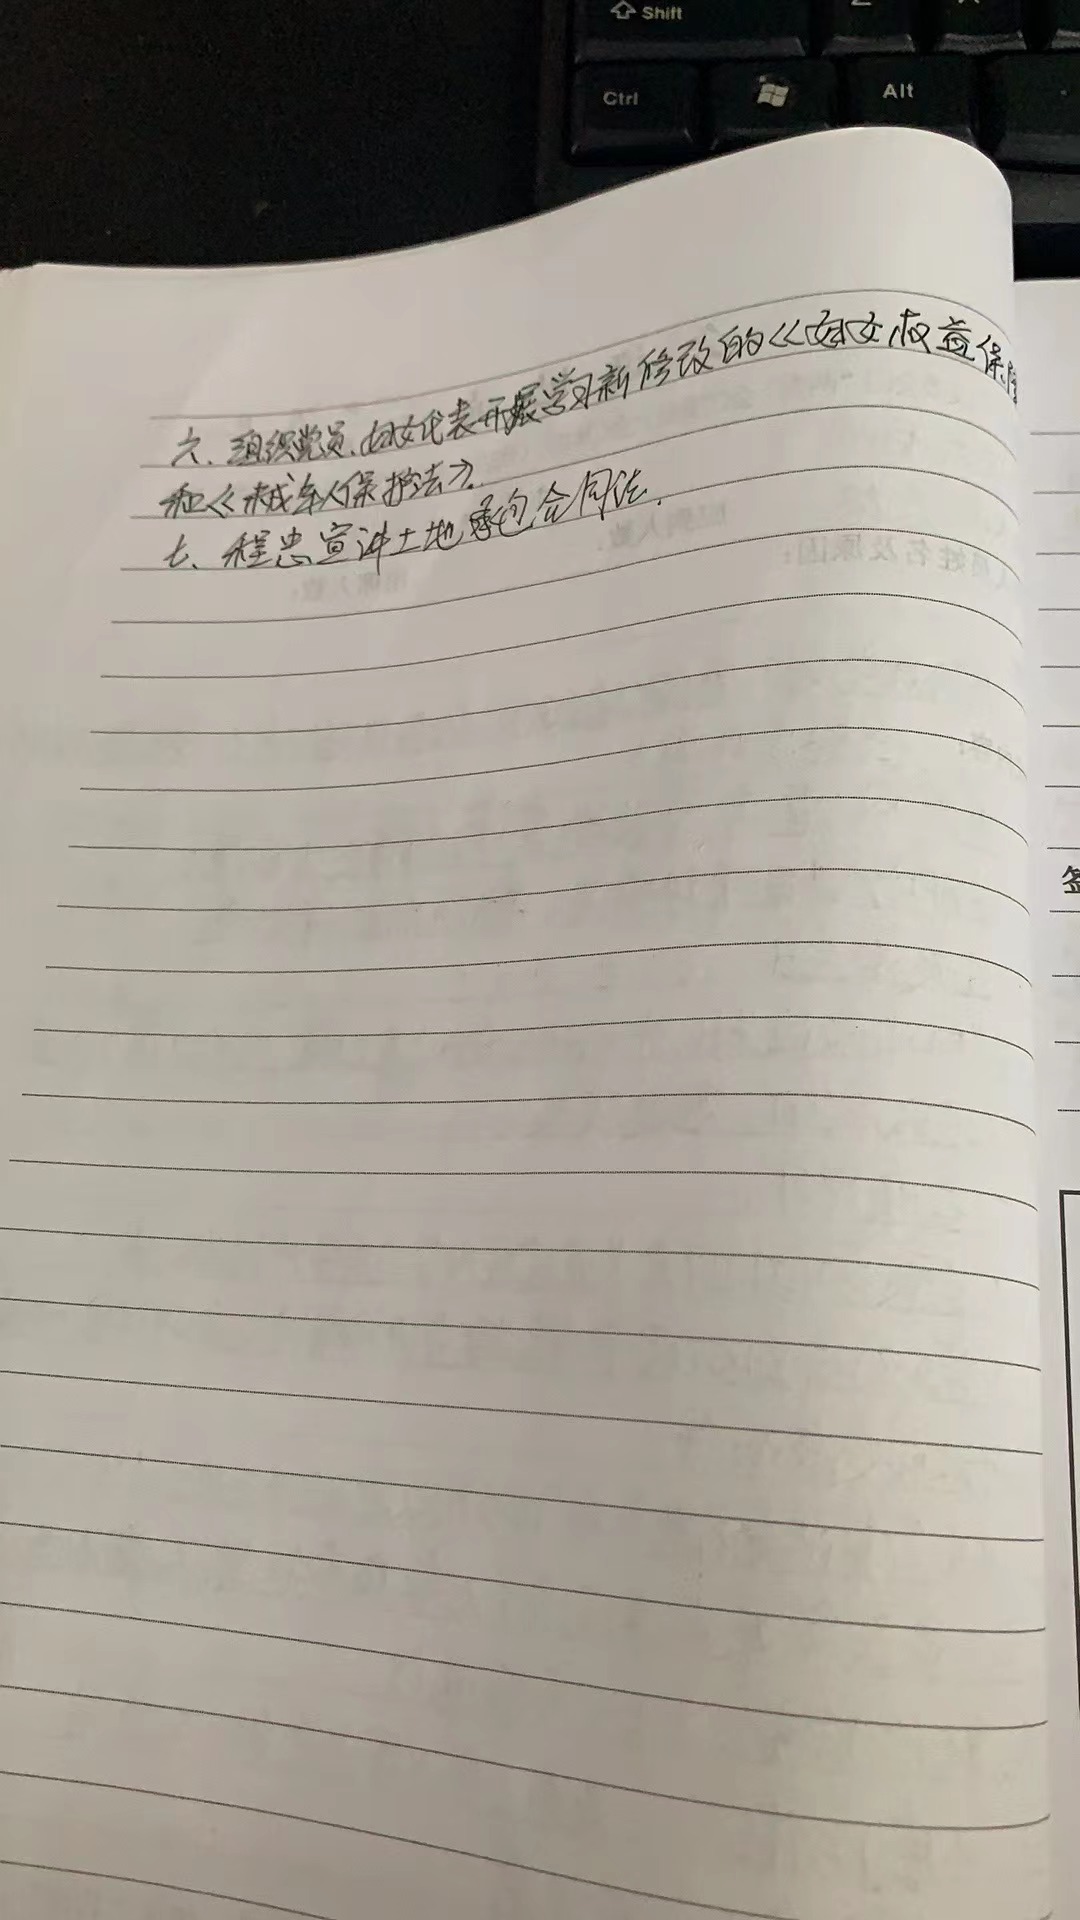 Shift
Ctrl
Alt
六、组织党员、妇女代表开展学习新修改的《妇女权益保障
和《未成年人保护法》.
七、程忠宣讲土地承包合同法.